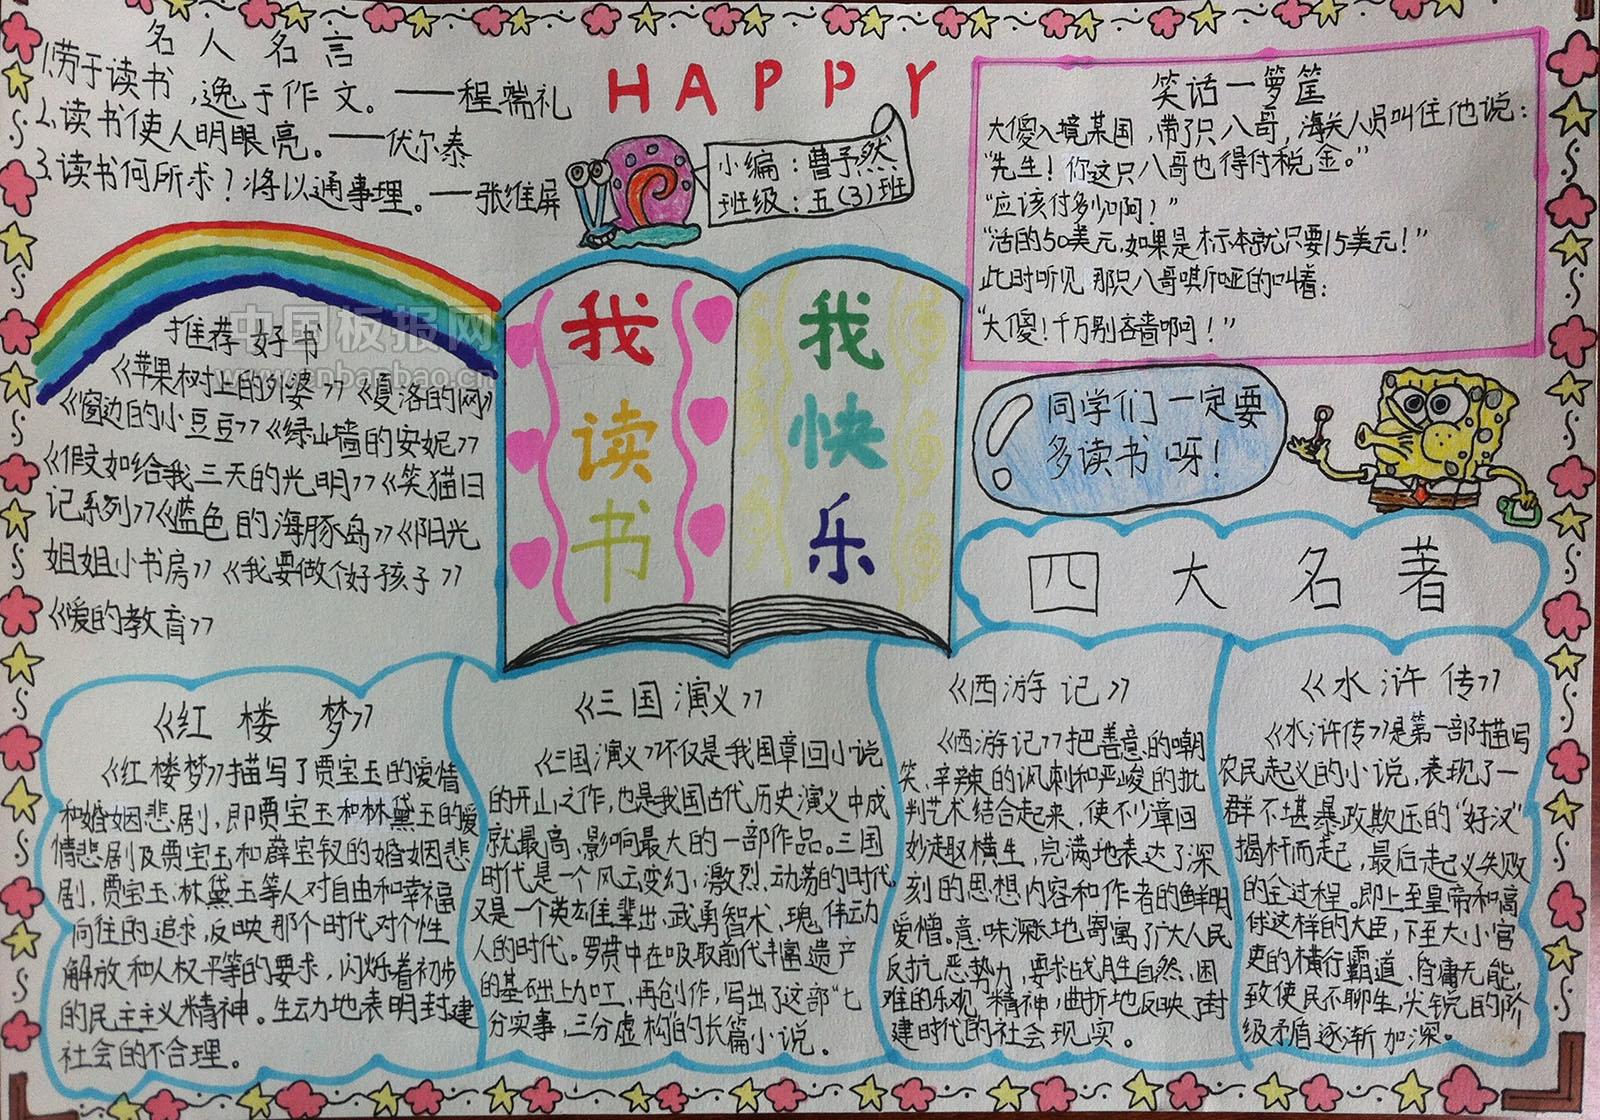 名人名言
1.劳于读书,逸于作文。——程端礼
2.读书使人明眼亮。——伏尔泰
3.读书何所求?将以通事理。——张维屏
HAPPY
小编:曹予然
班级:五(3)班
笑话一箩筐
大傻入境某国,带了只八哥,海关人员叫住他说:
“先生!你这只八哥也得付税金。”
“应该付多少啊?”
“活的50美元,如果是标本就只要15美元!”
此时听见那只八哥嘶哑的叫着:
“大傻!千万别吝啬啊!”
中国板报网
www.cnbanbao.cn
推荐好书
《苹果树上的外婆》《夏洛的网》
《窗边的小豆豆》《绿山墙的安妮》
《假如给我三天的光明》《笑猫日
记系列》《蓝色的海豚岛》《阳光
姐姐小书房》《我要做个好孩子》
《爱的教育》
我读书
我快乐
同学们一定要
多读书呀!
四大名著
《红楼梦》
《红楼梦》描写了贾宝玉的爱情
和婚姻悲剧,即贾宝玉和林黛玉的爱
情悲剧及贾宝玉和薛宝钗的婚姻悲
剧,贾宝玉、林黛玉等人对自由和幸福
向往的追求,反映那个时代对个性
解放和人权平等的要求,闪烁着初步
的民主主义精神。生动地表明封建
社会的不合理。
《三国演义》
《三国演义》不仅是我国章回小说
的开山之作,也是我国古代历史演义中成
就最高,影响最大的一部作品。三国
时代是一个风云变幻,激烈、动荡的时代
又是一个英雄辈出、武勇智术、瑰伟动
人的时代。罗贯中在吸取前代丰富遗产
的基础上加工、再创作,写出了这部“七
分实事,三分虚构”的长篇小说。
《西游记》
《西游记》把善意的嘲
笑、辛辣的讽刺和严峻的批
判艺术结合起来,使不少章回
妙趣横生,完满地表达了深
刻的思想内容和作者的鲜明
爱憎。意味深长地寄寓了广大人民
反抗恶势力,要求战胜自然、困
难的乐观精神,曲折地反映了封
建时代的社会现实。
《水浒传》
《水浒传》是第一部描写
农民起义的小说,表现了一
群不堪暴政欺压的“好汉”
揭杆而起,最后起义失败
的全过程。即上至皇帝和高
俅这样的大臣,下至大小官
吏的横行霸道、昏庸无能,
致使民不聊生,尖锐的阶
级矛盾逐渐加深。